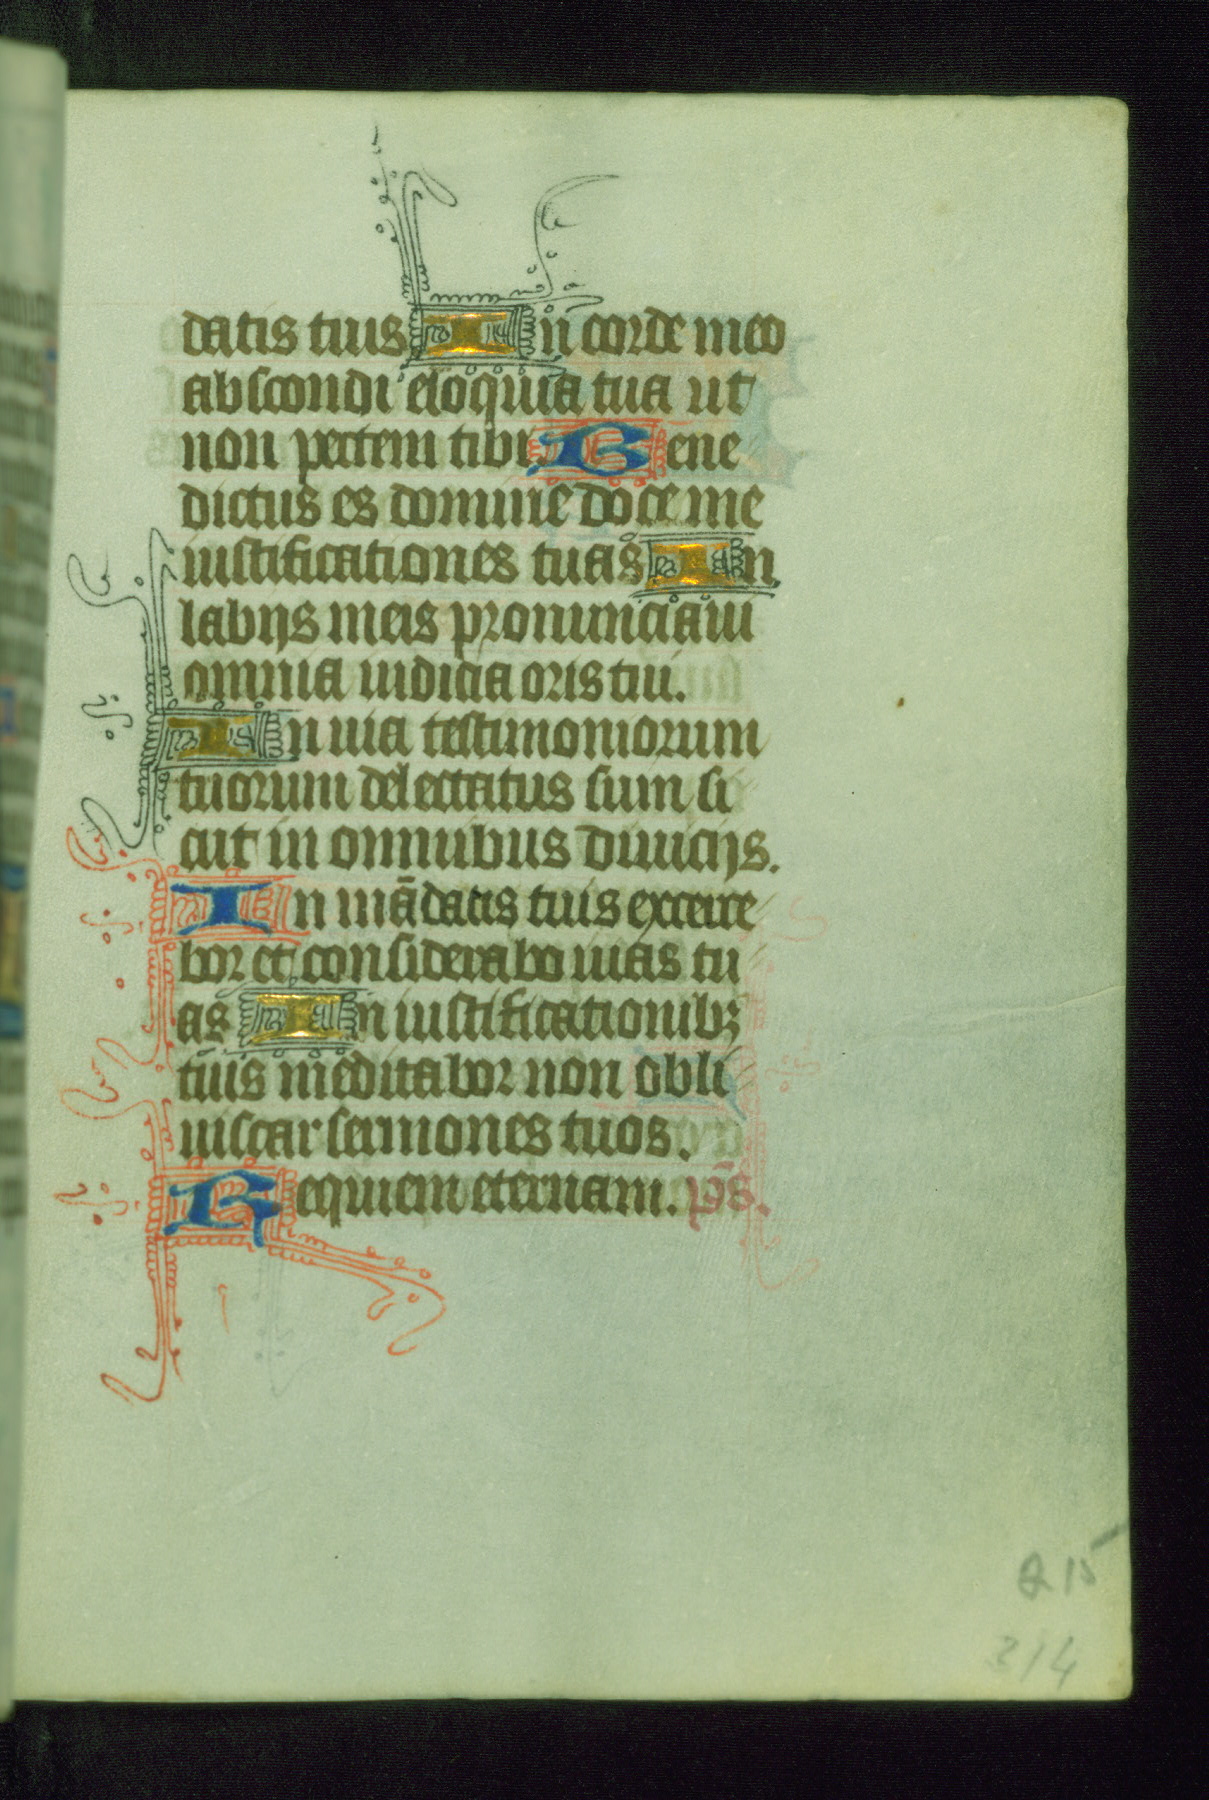 datis tuis In corde meo
abscondi eloquia tua ut
non peccem tibi. Bene
dictus es domine doce me
iustificationes tuas In
labijs meis pronunciaui
omnia iudicia oris tui.
In uia testimoniorum
tuorum delectatus sum si
cut in omnibus diuicijs.
In mādatis tuis exerce
bor et considerabo uias tu
as In iustificationibꝫ
tuis meditabor non obli
uiscar sermones tuos.
Requiem eternam. p̄s.
Q 15
214